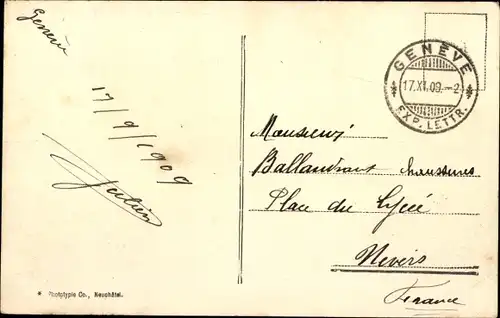 Genève
17/9/1909
Julien
* Phototypie Co., Neuchâtel.
GENÈVE
17.XI.09.-2
EXP. LETTR.
Monsieur
Ballandraot chaussures
Place du Lycée
Nevers
France